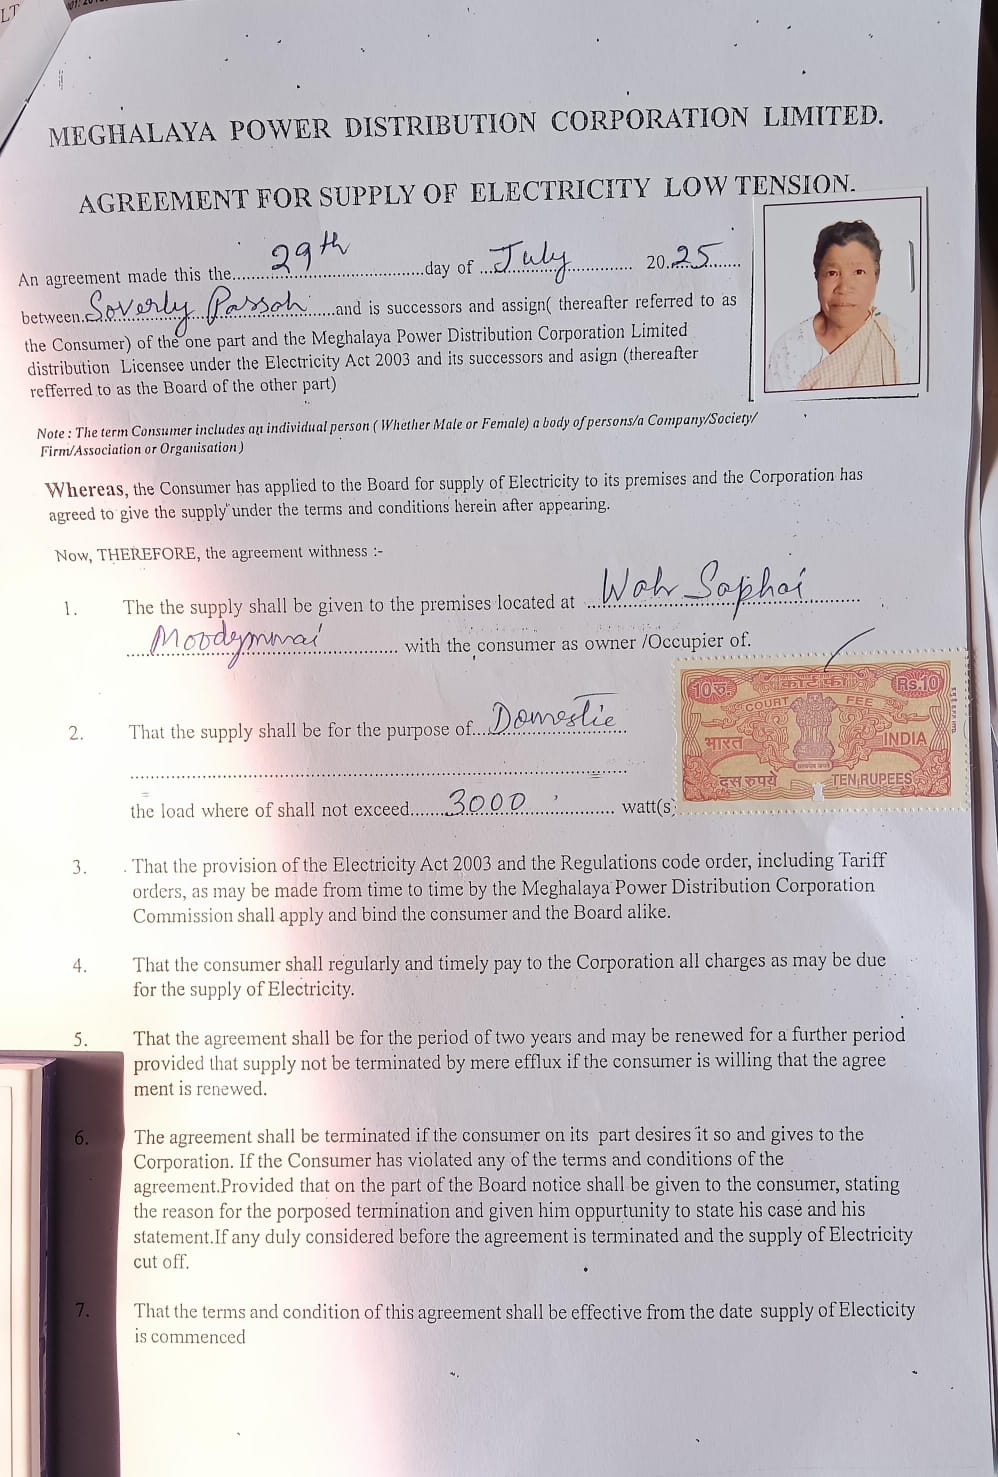 LT
MEGHALAYA POWER DISTRIBUTION CORPORATION LIMITED.
AGREEMENT FOR SUPPLY OF ELECTRICITY LOW TENSION.
An agreement made this the..29th..day of ..July.. 20..25..
between..Soverly Passah..and is successors and assign( thereafter referred to as
the Consumer) of the one part and the Meghalaya Power Distribution Corporation Limited
distribution Licensee under the Electricity Act 2003 and its successors and asign (thereafter
refferred to as the Board of the other part)
Note : The term Consumer includes an individual person ( Whether Male or Female) a body of persons/a Company/Society/
Firm/Association or Organisation )
Whereas, the Consumer has applied to the Board for supply of Electricity to its premises and the Corporation has
agreed to give the supply under the terms and conditions herein after appearing.
Now, THEREFORE, the agreement withness :-
1. The the supply shall be given to the premises located at ..Wah Saphai..
..Moodymmai.. with the consumer as owner /Occupier of.
10रु. कोर्ट फी Rs.10
COURT FEE
भारत INDIA
दस रुपये TEN RUPEES
2. That the supply shall be for the purpose of..Domestic..
the load where of shall not exceed..3000.. watt(s)
3. That the provision of the Electricity Act 2003 and the Regulations code order, including Tariff
orders, as may be made from time to time by the Meghalaya Power Distribution Corporation
Commission shall apply and bind the consumer and the Board alike.
4. That the consumer shall regularly and timely pay to the Corporation all charges as may be due
for the supply of Electricity.
5. That the agreement shall be for the period of two years and may be renewed for a further period
provided that supply not be terminated by mere efflux if the consumer is willing that the agree
ment is renewed.
6. The agreement shall be terminated if the consumer on its part desires it so and gives to the
Corporation. If the Consumer has violated any of the terms and conditions of the
agreement.Provided that on the part of the Board notice shall be given to the consumer, stating
the reason for the porposed termination and given him oppurtunity to state his case and his
statement.If any duly considered before the agreement is terminated and the supply of Electricity
cut off.
7. That the terms and condition of this agreement shall be effective from the date supply of Electicity
is commenced